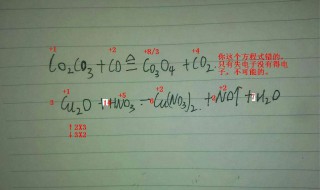 +1 +2 +8/3 +4
Co₂CO₃ + CO ≙ Co₃O₄ + CO₂.
你这个方程式错的,
只有失电子没有得电
子,不可能的。
+1 +5 +2 +2
3 Cu₂O + 14 HNO₃ = 6 Cu(NO₃)₂ + 2 NO↑ + 7 H₂O
↑2X3
↓3X2